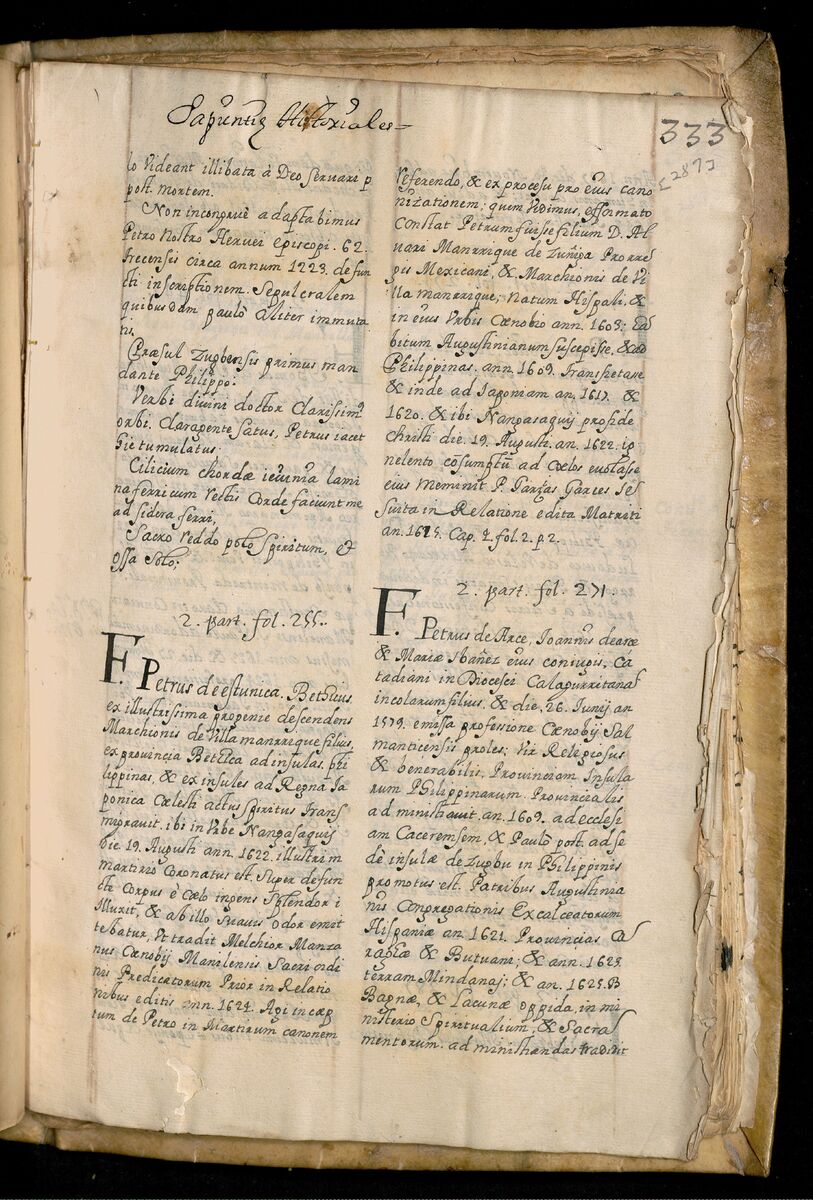 Historiales=
333
[287]
lo videant illibata à Deo servari p
post mortem.
Non incongruè adaptabimus
Petro Nostro Hervei episcopi. 62.
Trecensis circa annum 1223. defun
cti inscriptionem. Sepulcralem
quibusdam paulò aliter immuta
tis.
Præsul Zugbensis primus man
dante Philippo.
Verbi divini doctor Clarissim9
orbi. Claragente satus, Petrus iacet
hic tumulatus.
Cilicium chordæ ieiunia lami
na ferri cum vestis Corde faciunt me
ad sidera ferri,
Sacro reddo polo Spiritum, et
ossa Solo;
2. part. fol. 255..
F. Petrus de estunica. Bethicus
ex illustrissima progenie descendens
Marchionis de Villa manrrique filius,
ex provincia Bethica ad insulas. phi
lippinas, & ex insules ad Regna Ja
ponica Cælesti actus spiritus trans
migravit. ibi in Vrbe Nangasaquij
die. 19. Augusti ann. 1622. illustri m
martirio Coronatus est. Super defun
cti Corpus è Cælo ingens splendor i
lluxit, & ab illo suavis odor emit
tebatur, Vt tradit Melchior Manza
nus Cænobij Manilensis Sacri ordi
nis Predicatorum Prior in Relatio
nibus editis ann. 1624. Agi in cæp
tum de Petro in Martirum canonem
referendo, & ex procesu pro eius cano
nizationem; quem Vidimus, efformato
Constat Petrum fuisse filium D. Al
vari Manrrique de Zuñiga Prorre
gis Mexicani, & Marchionis de Vi
lla manrrique, natum Hispali, &
in eius Vrbis Cænobio ann. 1603;
bitum Augustinianum suscepisse, & ad
Philippinas. ann. 1609. transfretasse
& inde ad Japoniam an. 1617. &
1620. & ibi Nangasaquij pro fide
Christi die. 19. Augusti. an. 1622. ig
ne lento cõsumptũ ad Cælos evolasse
eius meminit P. Garces Jes
suita in Relatione edita Matriti
an. 1625. Cap. fol. 2. p 2.
2. part. fol. 271.
F. Petrus de Arce, Joannis de arze
& Mariæ Ibañez eius coniugis. Ca
tadiani in Diocesi Calagurritana
incolarum filius, & die. 26. Junij an
1579. emissa professione Cænobij Sal
manticensis proles; Vir Religiosus
& benerabilis. Provinciam Insula
rum Philippinarum. Provincialis
administravit. an. 1609. ad ecclesi
am Caceremsem, & Paulò post. ad se
dē insulæ de Zugbu in Philippinis
promotus est. Patribus Augustinia
nis Congregationis Excalceatorum
Hispaniæ an. 1621. Provincias Ca
ragæ & Butuani; & ann. 1623
terram Mindanaj; & an. 1625.
Bagnæ, & Lacunæ Oppida, in mi
nisterio Spiritualium, & Sacra
mentorum. administrandas tradidit